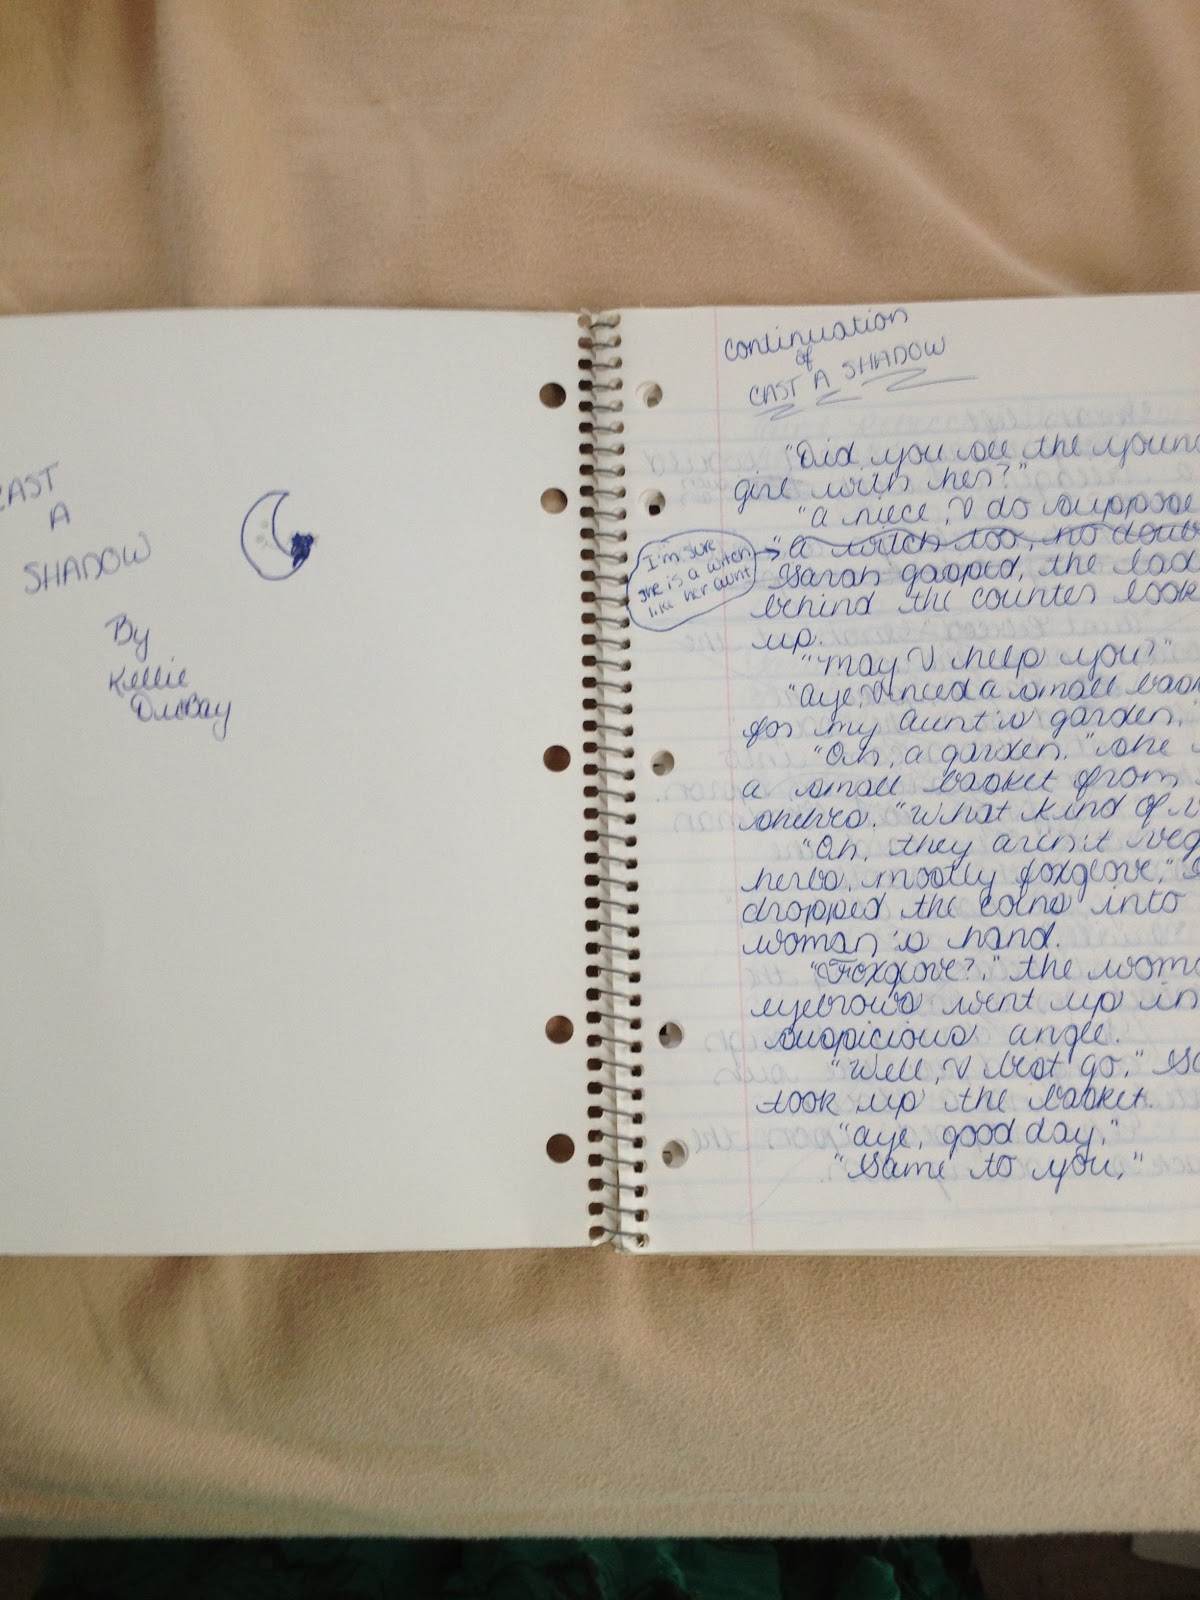 CAST
A
SHADOW
By
Kellie
continuation
of
CAST A SHADOW
"Did you see the youn
girl with her?"
"A niece, I do suppose
I'm sure
she is a witch
like her aunt
"A witch too, no doub
Sarah gasped, the lad
behind the counter look
up.
"May I help you?"
"Aye, I need a small bas
for my aunt's garden."
"Oh, a garden." she
a small basket from
shelves. "What kind of v
"Oh, they aren't veg
herbs, mostly foxglove." S
dropped the coins into
woman's hand.
"Foxglove?," the woma
eyebrows went up in
suspicious angle.
"Well, I best go," Sa
took up the basket.
"Aye, good day."
"Same to you,"